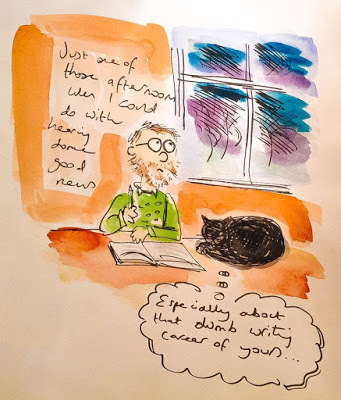 Just one of
those afternoons
when I could
do with
hearing
some
good
news
Especially about
that dumb writing
career of yours...